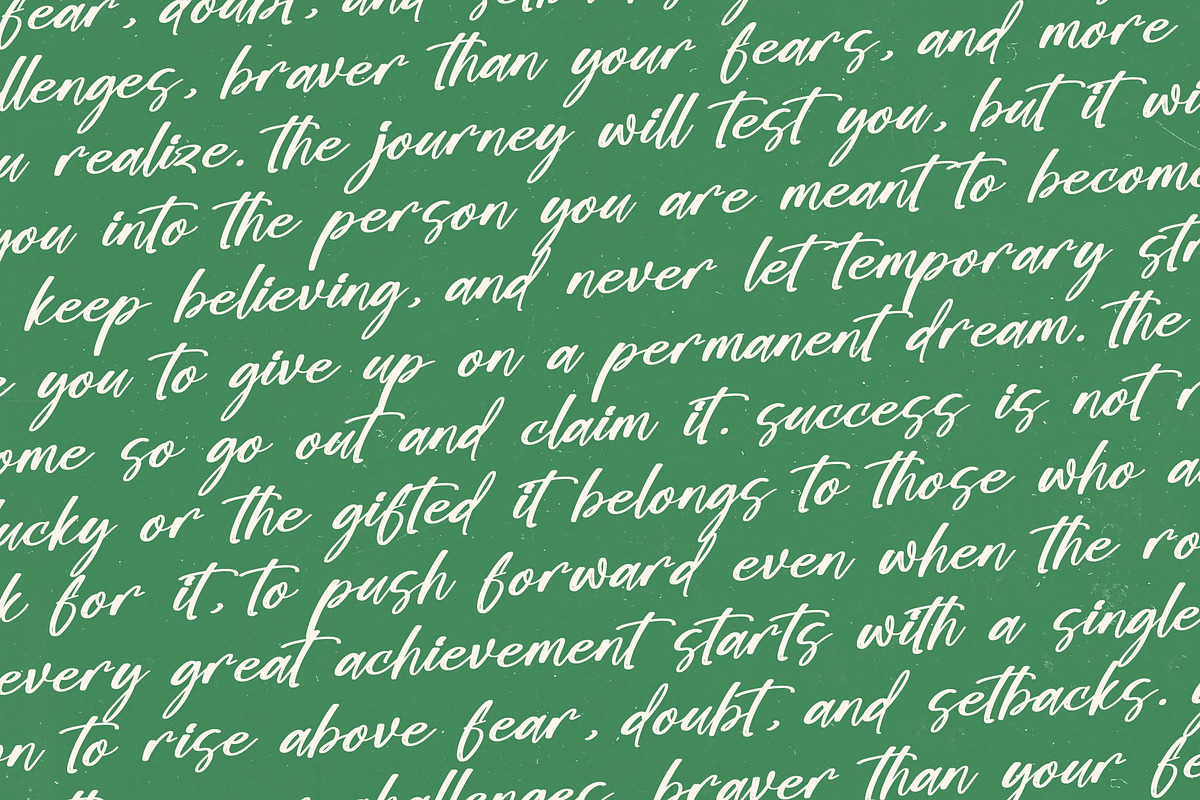 fear, doubt, and
llenges, braver than your fears, and more
u realize. the journey will test you, but it wi
you into the person you are meant to become
keep believing, and never let temporary str
e you to give up on a permanent dream. the
ome so go out and claim it. success is not r
lucky or the gifted it belongs to those who a
k for it, to push forward even when the ro
every great achievement starts with a single
on to rise above fear, doubt, and setbacks.
challenges, braver than your fe